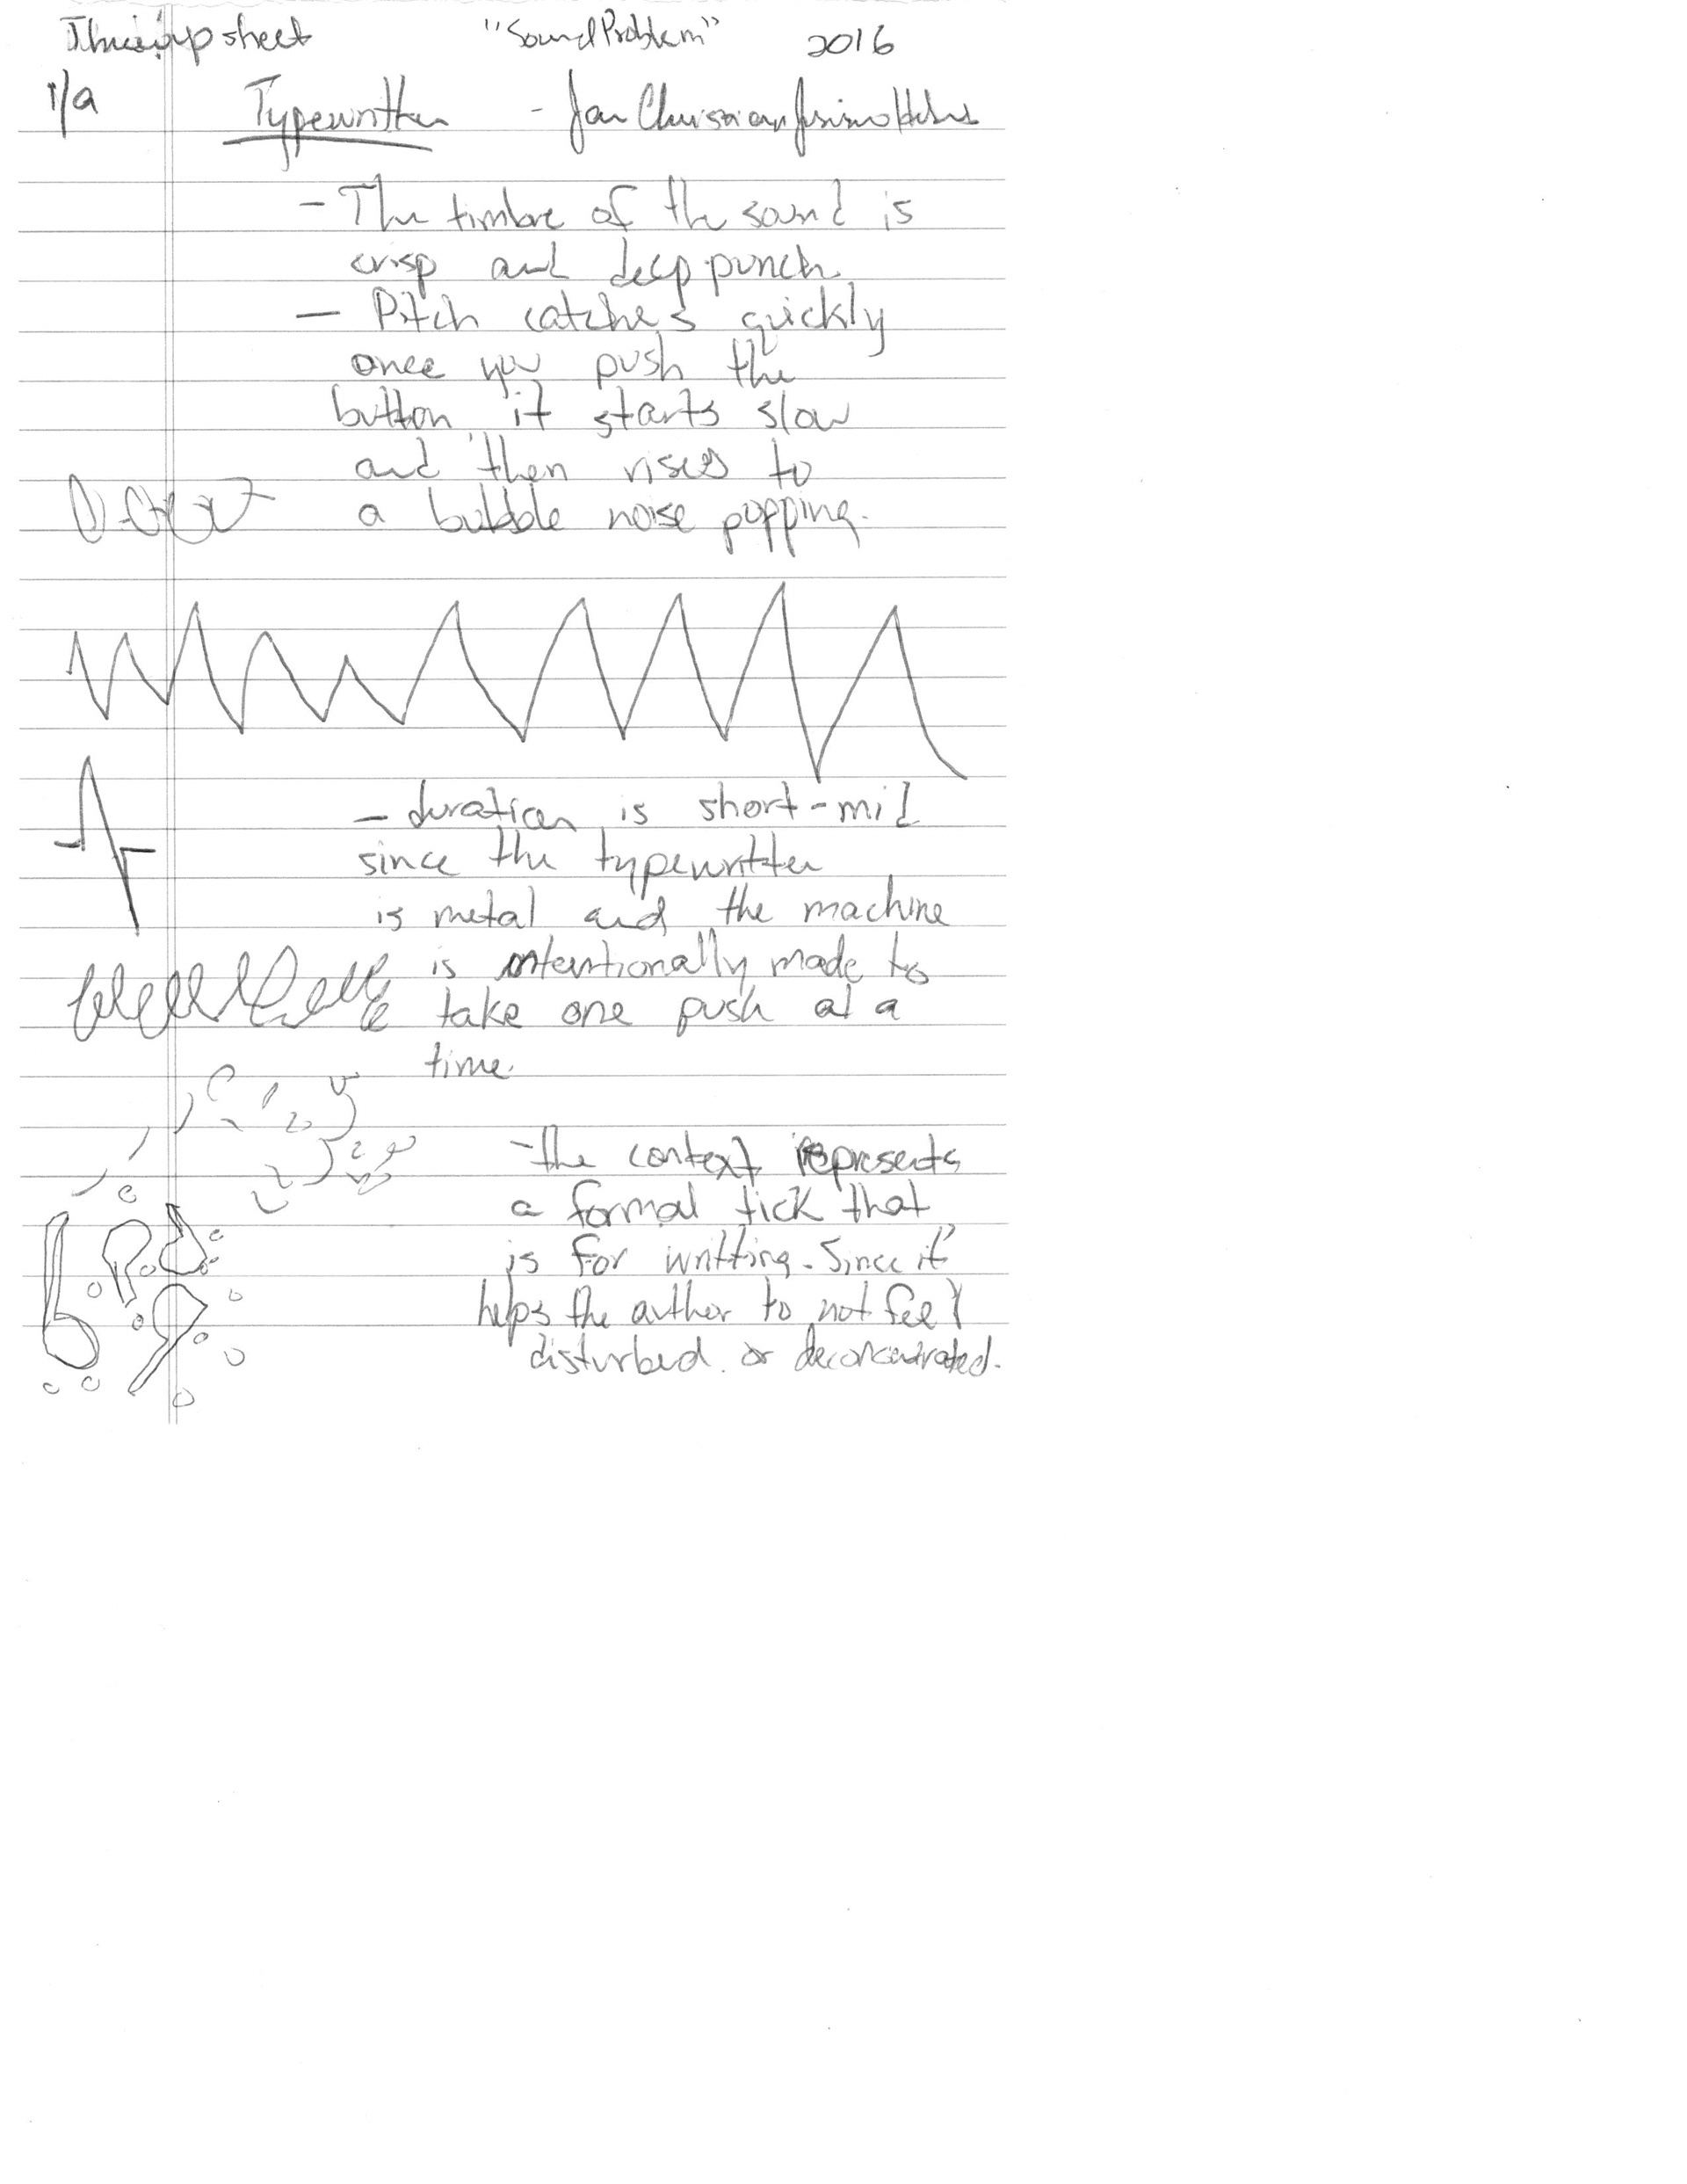 sheet "Sound Problem" 2016
1/a Typewritter - Jan
- The timbre of the sound is
crisp and deep punch
- Pitch catches quickly
once you push the
button, it starts slow
and then rises to
a bubble noise popping.
- duration is short-mid
since the typewritter
is metal and the machine
is intentionally made to
take one push at a
time.
- the context represents
a formal tick that
is for writting. Since it
helps the author to not feel
disturbed or deconcentrated.